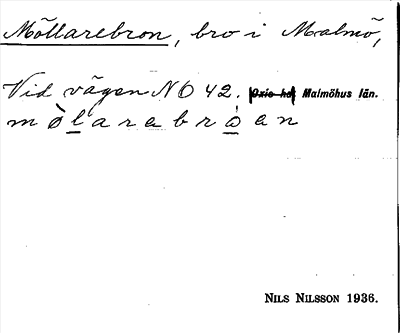 Möllarebron, bro i Malmö,
Vid vägen N6 42. Oxie hd Malmöhus län.
mòlarebróan
NILS NILSSON 1936.